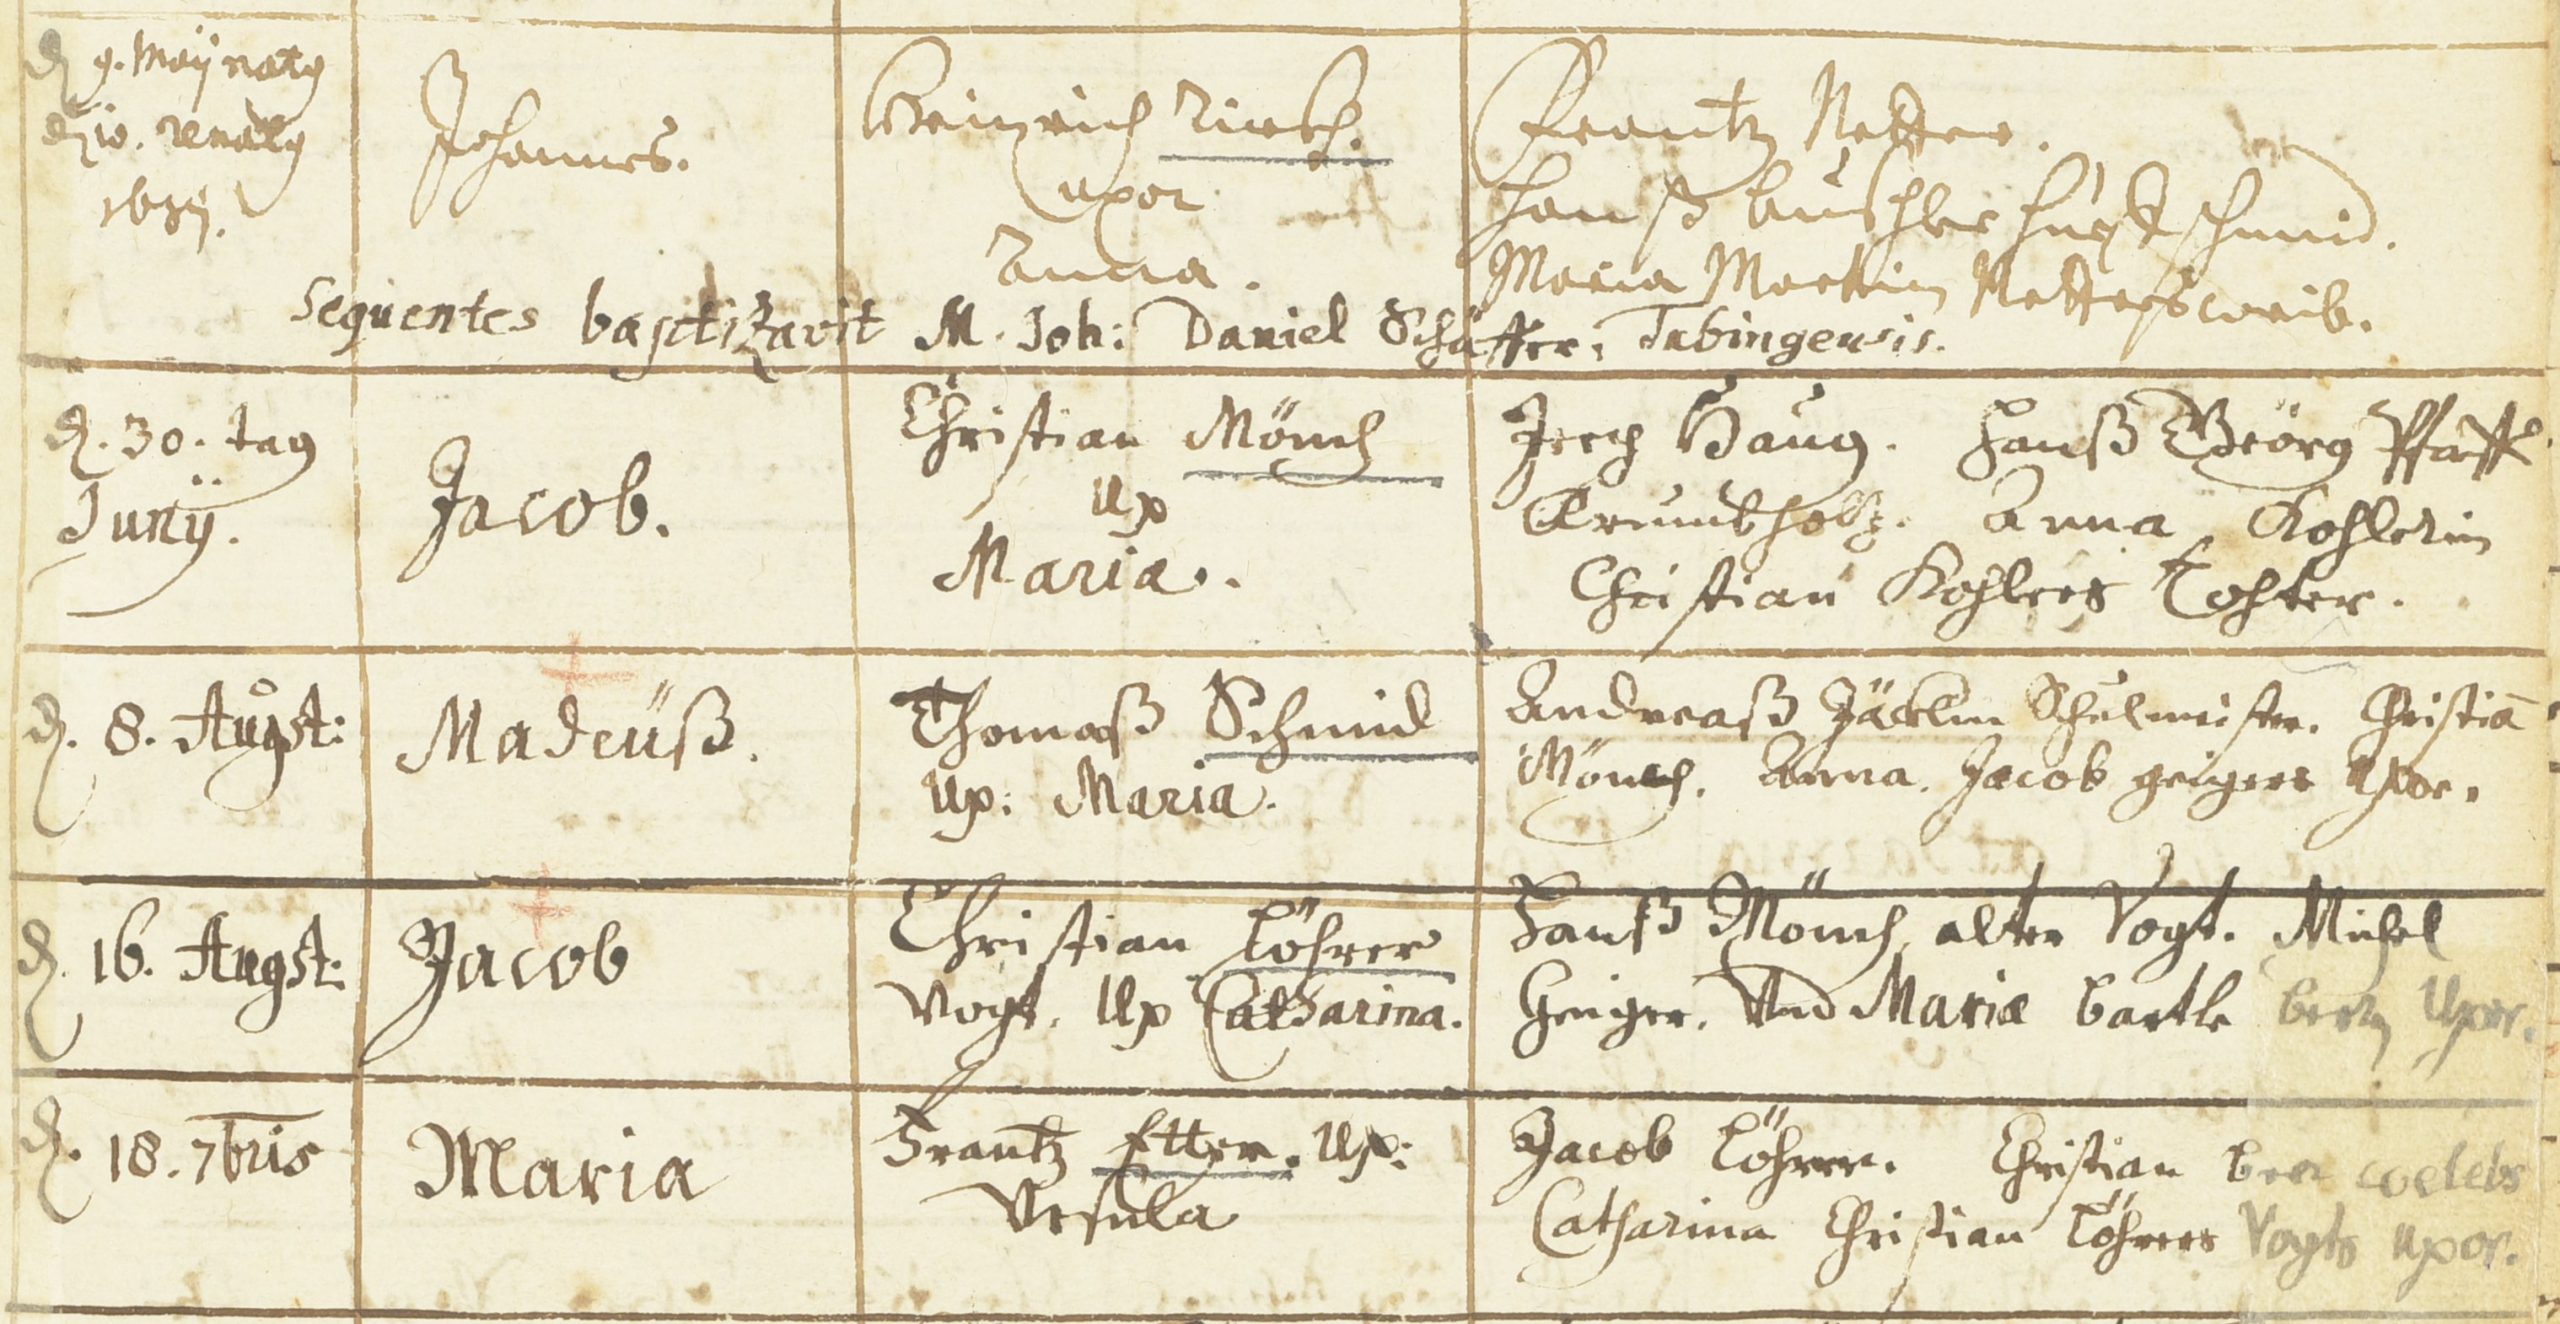 d. 9. Maÿ natus
d. 10. renatus
Johannes.
Heinrich
uxor
Anna.
Frantz Netter.
Hanß Huefschmid.
Maria Martin Netters weib.
Sequentes baptizavit M. Joh: Daniel Schäffer, Tubingensis.
d. 30. tag
Junÿ.
Jacob.
Christian Mönch
Ux
Maria.
Jerg Haug. Hanß Geörg Pfaff
Krumbholtz. Anna Kohlerin
Christian Kohlers Tohter.
d. 8. Augst:
Madeüß.
Thomaß Schmid
Ux: Maria.
Andreaß Jäcklin Schulmeister. Christiā
Mönch. Anna. Jacob geigers Uxor.
d. 16. Augst:
Jacob
Christian Löhrer
Vogt. Ux Catharina.
Hanß Mönch, alter Vogt. Michel
Geiger. Und Maria Bartle Uxor.
d. 18. 7bris
Maria
Frantz Etter. Ux:
Ursula
Jacob Löhrer. Christian coelebs
Catharina Christian Löhrers Vogts uxor.